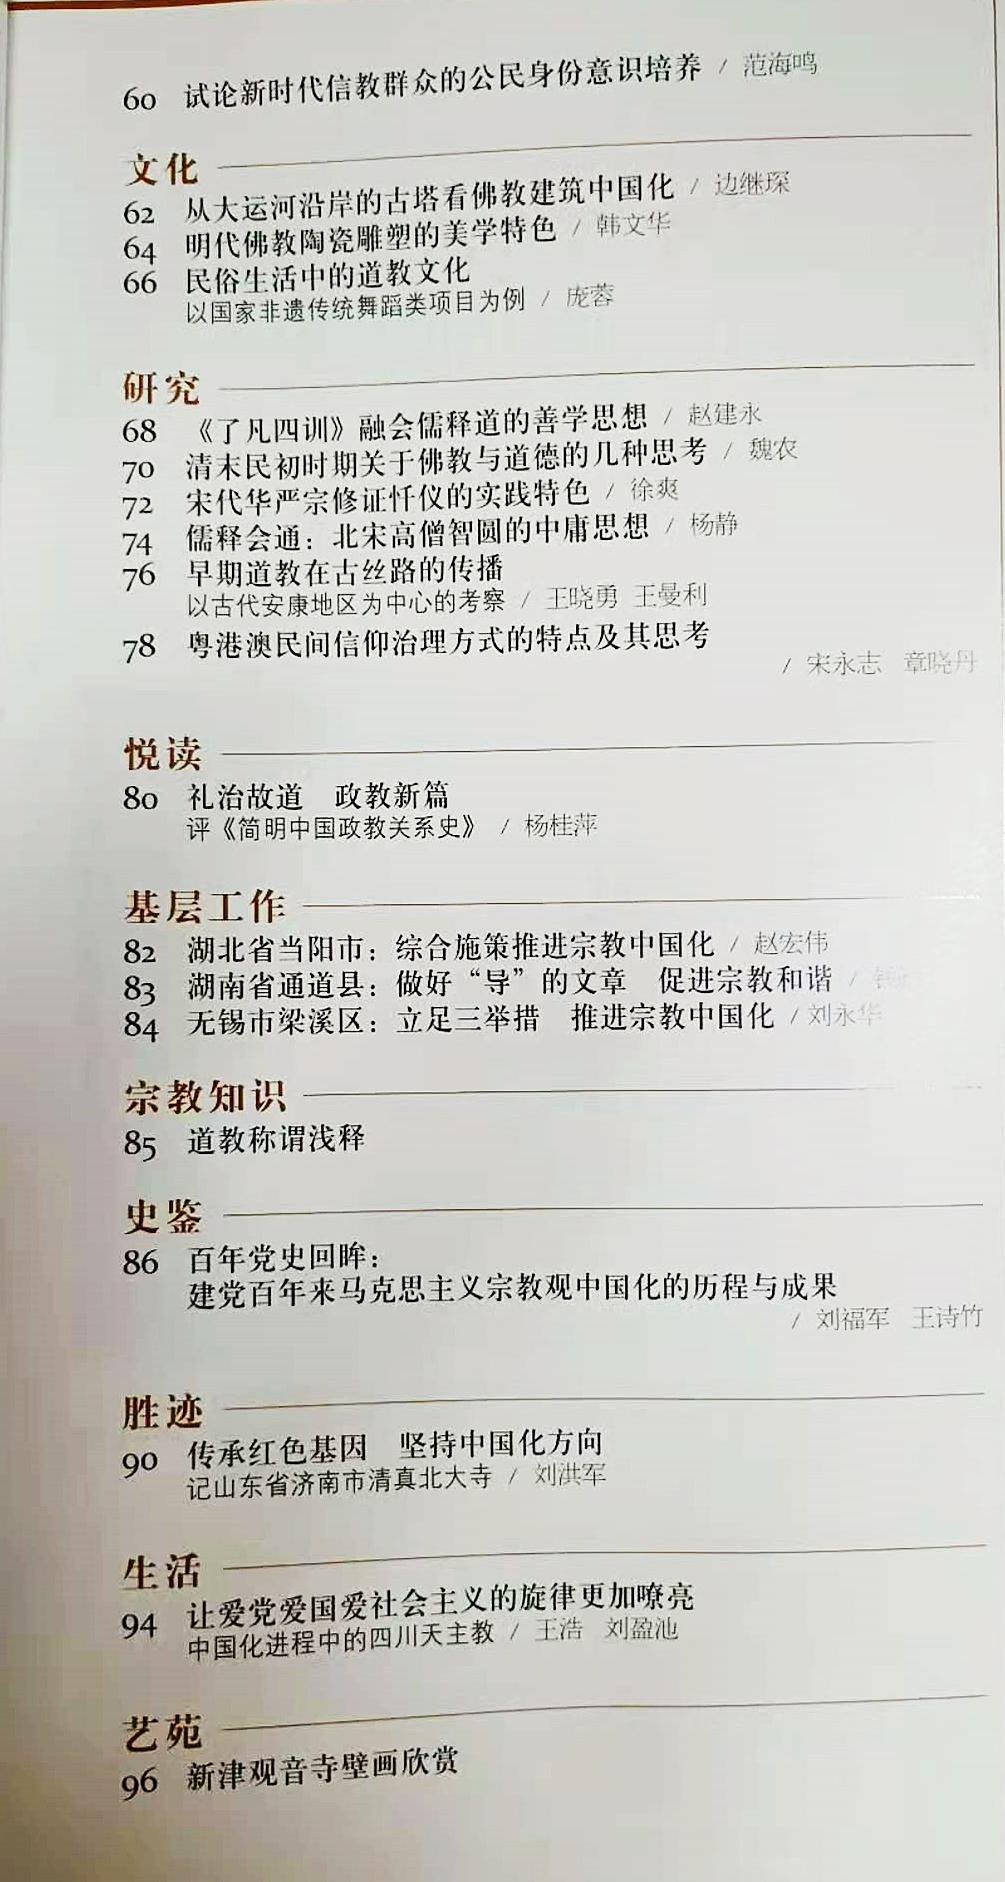 60 试论新时代信教群众的公民身份意识培养 / 范海鸣
文化
62 从大运河沿岸的古塔看佛教建筑中国化 / 边继琛
64 明代佛教陶瓷雕塑的美学特色 / 韩文华
66 民俗生活中的道教文化
以国家非遗传统舞蹈类项目为例 / 庞蓉
研究
68 《了凡四训》融会儒释道的善学思想 / 赵建永
70 清末民初时期关于佛教与道德的几种思考 / 魏农
72 宋代华严宗修证忏仪的实践特色 / 徐爽
74 儒释会通：北宋高僧智圆的中庸思想 / 杨静
76 早期道教在古丝路的传播
以古代安康地区为中心的考察 / 王晓勇 王曼利
78 粤港澳民间信仰治理方式的特点及其思考
/ 宋永志 章晓丹
悦读
80 礼治故道 政教新篇
评《简明中国政教关系史》 / 杨桂萍
基层工作
82 湖北省当阳市：综合施策推进宗教中国化 / 赵宏伟
83 湖南省通道县：做好“导”的文章 促进宗教和谐 /
84 无锡市梁溪区：立足三举措 推进宗教中国化 / 刘永华
宗教知识
85 道教称谓浅释
史鉴
86 百年党史回眸：
建党百年来马克思主义宗教观中国化的历程与成果
/ 刘福军 王诗竹
胜迹
90 传承红色基因 坚持中国化方向
记山东省济南市清真北大寺 / 刘洪军
生活
94 让爱党爱国爱社会主义的旋律更加嘹亮
中国化进程中的四川天主教 / 王浩 刘盈池
艺苑
96 新津观音寺壁画欣赏